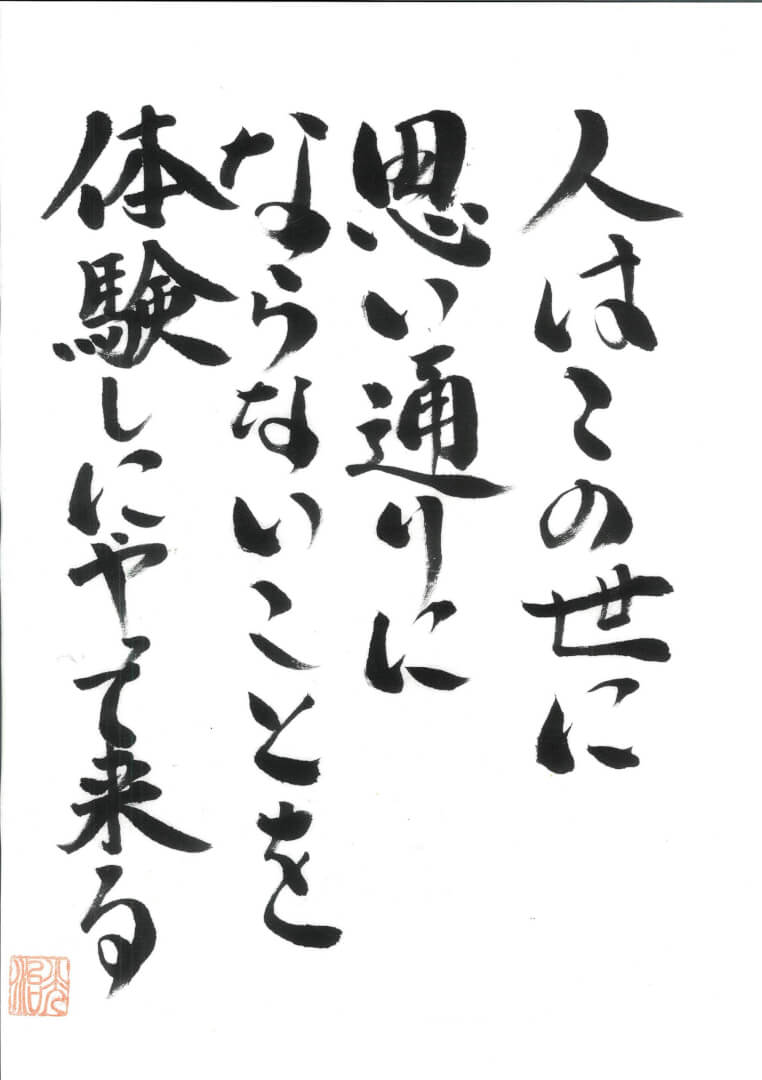 人はこの世に
思い通りに
ならないことを
体験しにやって来る